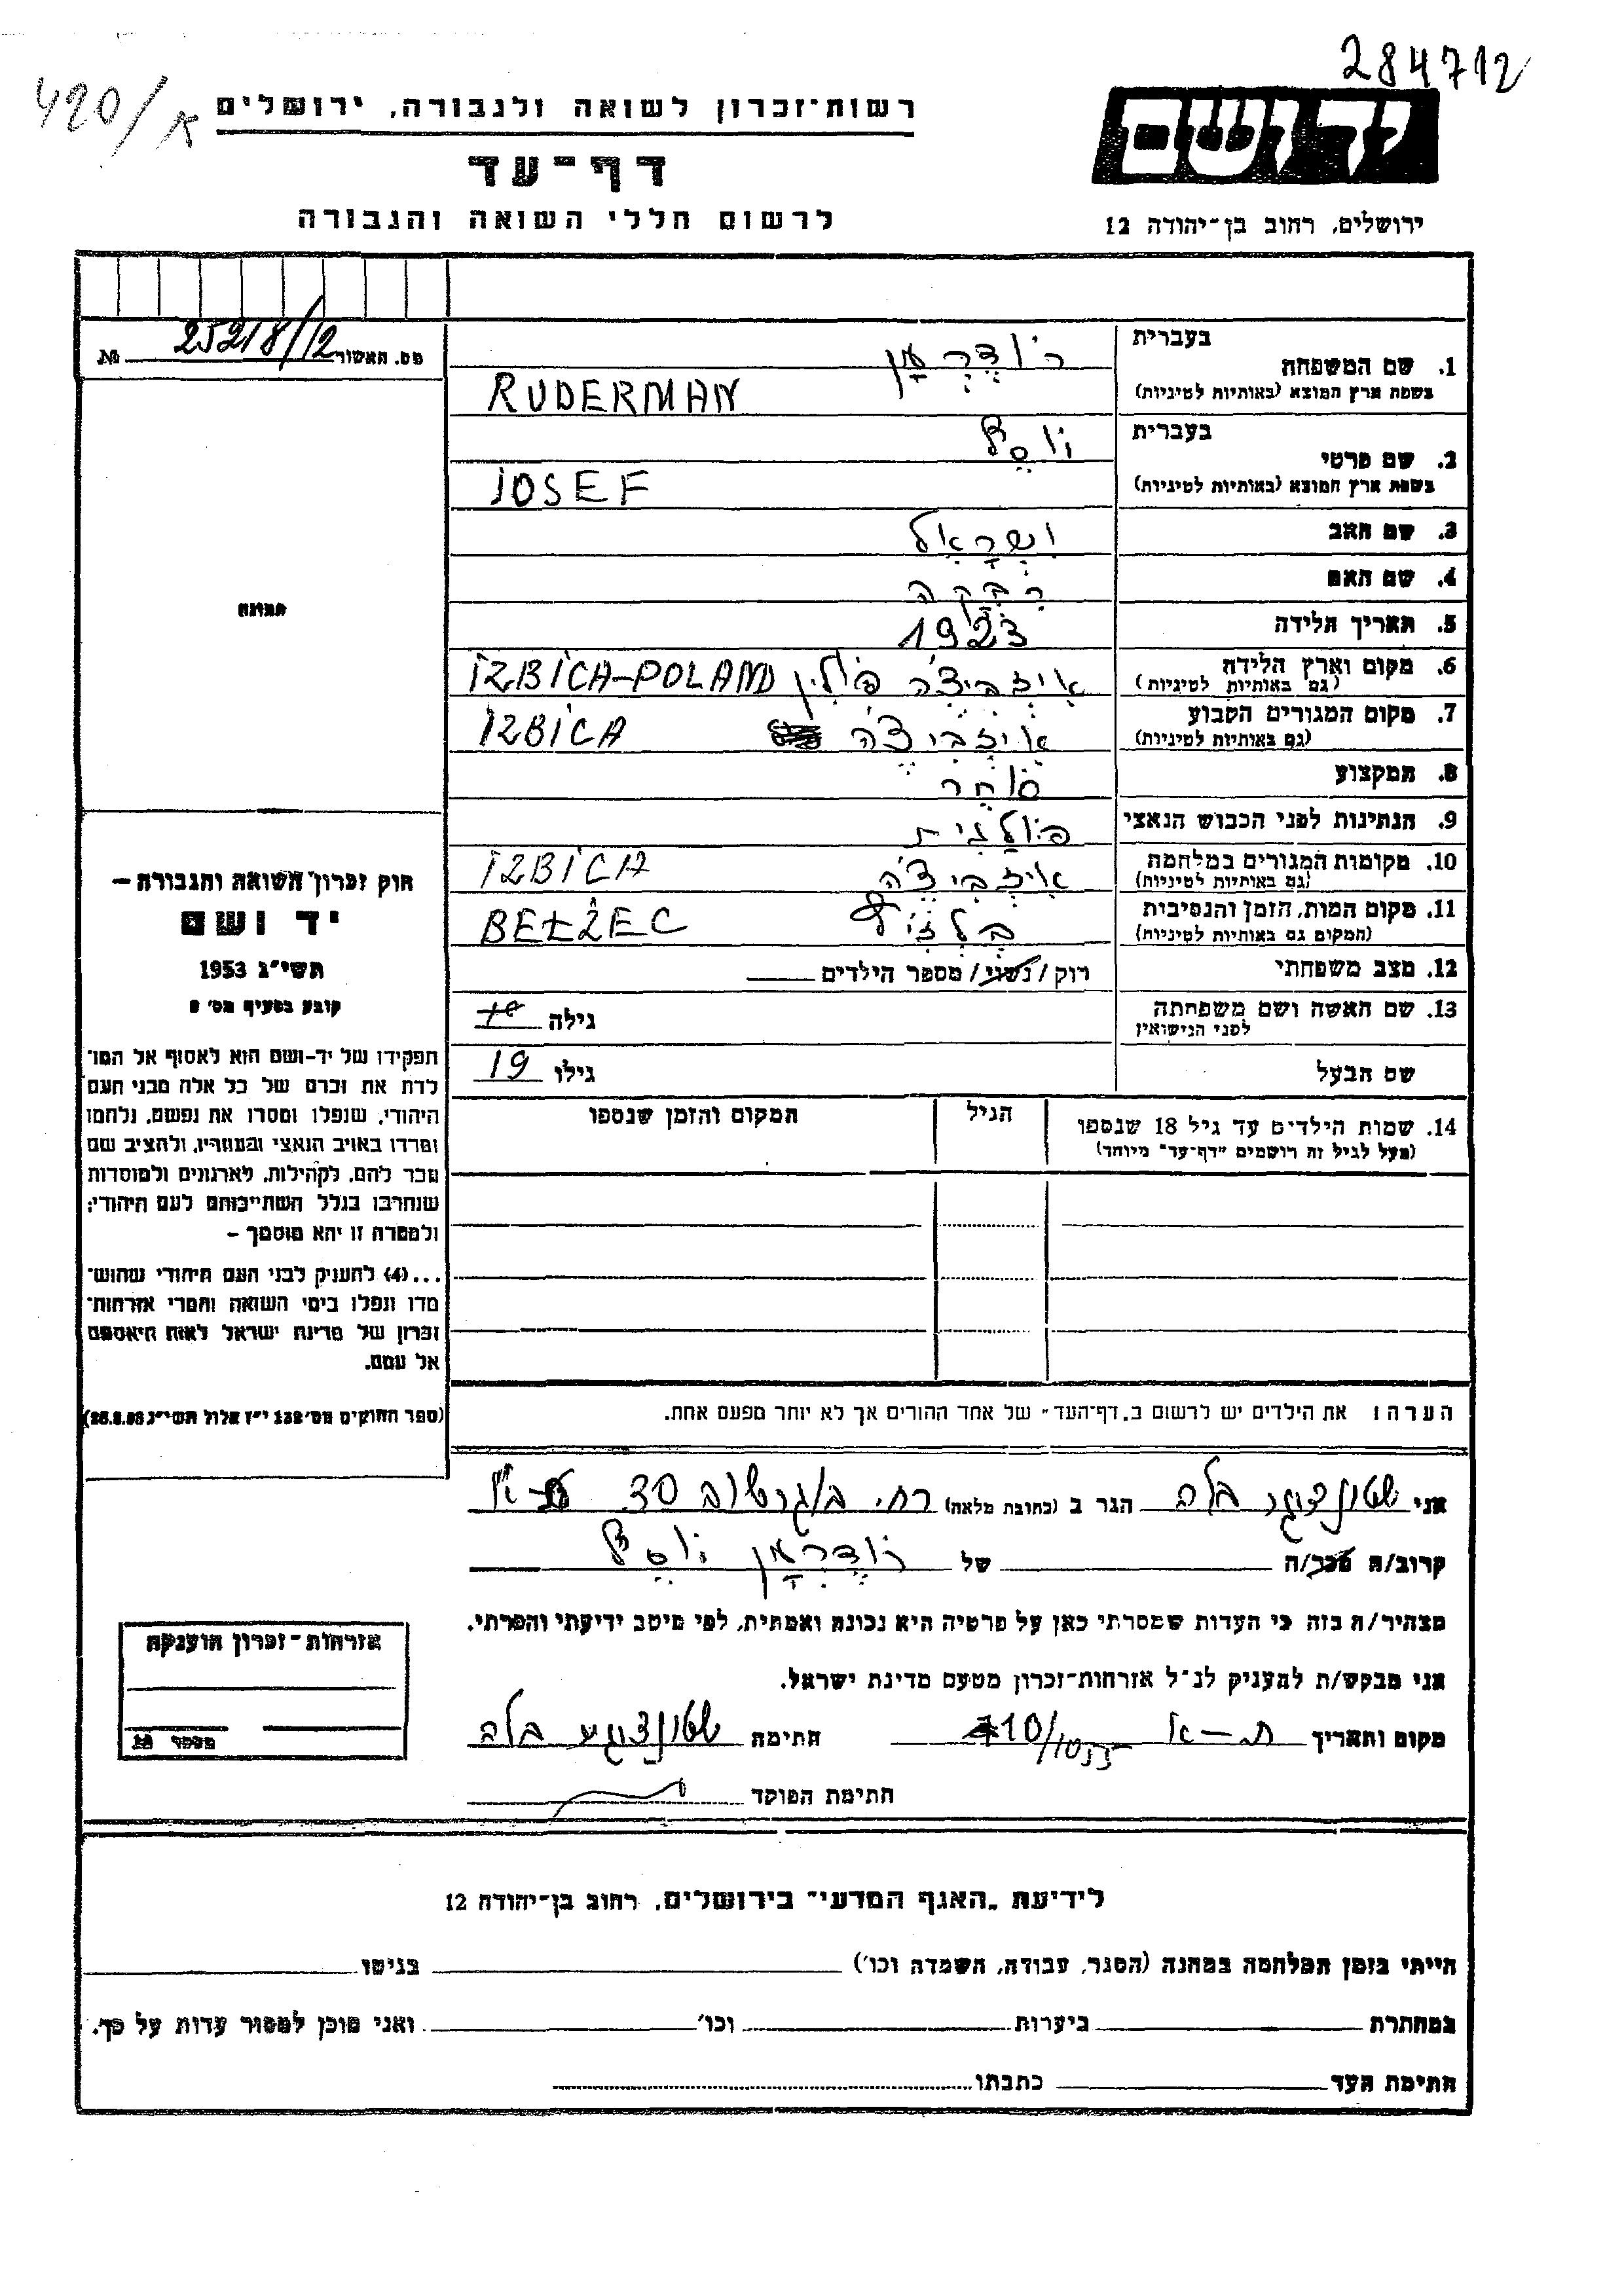 284712
420/א
יד ושם
רשות־זכרון לשואה ולגבורה, ירושלים
דף־עד
לרשום חללי השואה והגבורה
ירושלים, רחוב בן־יהודה 12
מס. האשור 25218/12 №
1. שם המשפחה
בעברית רודרמן
בשפת ארץ המוצא (באותיות לטיניות) RUDERMAN
2. שם פרטי
בעברית יוסף
בשפת ארץ המוצא (באותיות לטיניות) IOSEF
3. שם האב ישראל
4. שם האם רבקה
5. תאריך הלידה 1923
6. מקום וארץ הלידה (גם באותיות לטיניות) איזביצה פולין IZBICA-POLAND
7. מקום המגורים הקבוע (גם באותיות לטיניות) איזביצה IZBICA
8. המקצוע סוחר
9. הנתינות לפני הכבוש הנאצי פולנית
10. מקומות המגורים במלחמה (גם באותיות לטיניות) איזביצה IZBICA
11. מקום המות, הזמן והנסיבות (המקום גם באותיות לטיניות) BEŁŻEC
12. מצב משפחתי רוק/נשוי/מספר הילדים
13. שם האשה ושם משפחתה לפני הנישואין גילה
שם הבעל גילו 19
14. שמות הילדים עד גיל 18 שנספו
(מעל לגיל זה רושמים "דף־עד" מיוחד)
הגיל
המקום והזמן שנספו
תמונה
חוק זכרון השואה והגבורה –
יד ושם
תשי"ג 1953
קובע בסעיף מס' 2
תפקידו של יד-ושם הוא לאסוף אל המו־
לדת את זכרם של כל אלה מבני העם
היהודי, שנפלו ומסרו את נפשם, נלחמו
ומרדו באויב הנאצי ובעוזריו, ולהציב שם
וזכר להם, לקהילות, לארגונים ולמוסדות
שנחרבו בגלל השתייכותם לעם היהודי;
ולמטרה זו יהא מוסמך –
...(4) להעניק לבני העם היהודי שהוש־
מדו ונפלו בימי השואה והמרי אזרחות־
זכרון של מדינת ישראל לאות היאספם
אל עמם.
(ספר החוקים מס' 132 י"ז אלול תשי"ג 28.8.53)
הערה: את הילדים יש לרשום ב"דף־העד" של אחד ההורים אך לא יותר מפעם אחת.
אני בלה הגר ב (כתובת מלאה) רח. 30
קרוב/ה מכר/ה של רודרמן יוסף
מצהיר/ה בזה כי העדות שמסרתי כאן על פרטיה היא נכונה ואמתית, לפי מיטב ידיעתי והכרתי.
אני מבקש/ת להעניק לנ"ל אזרחות־זכרון מטעם מדינת ישראל.
מקום ותאריך ת-א חתימה בלה
חתימת הפוקד
אזרחות־זכרון הוענקה
מספר №
לידיעת "האגף המדעי" בירושלים, רחוב בן־יהודה 12
הייתי בזמן המלחמה במחנה (הסגר, עבודה, השמדה וכו') בגיטו
במחתרת ביערות וכו' ואני מוכן למסור עדות על כך.
חתימת העד כתבתו